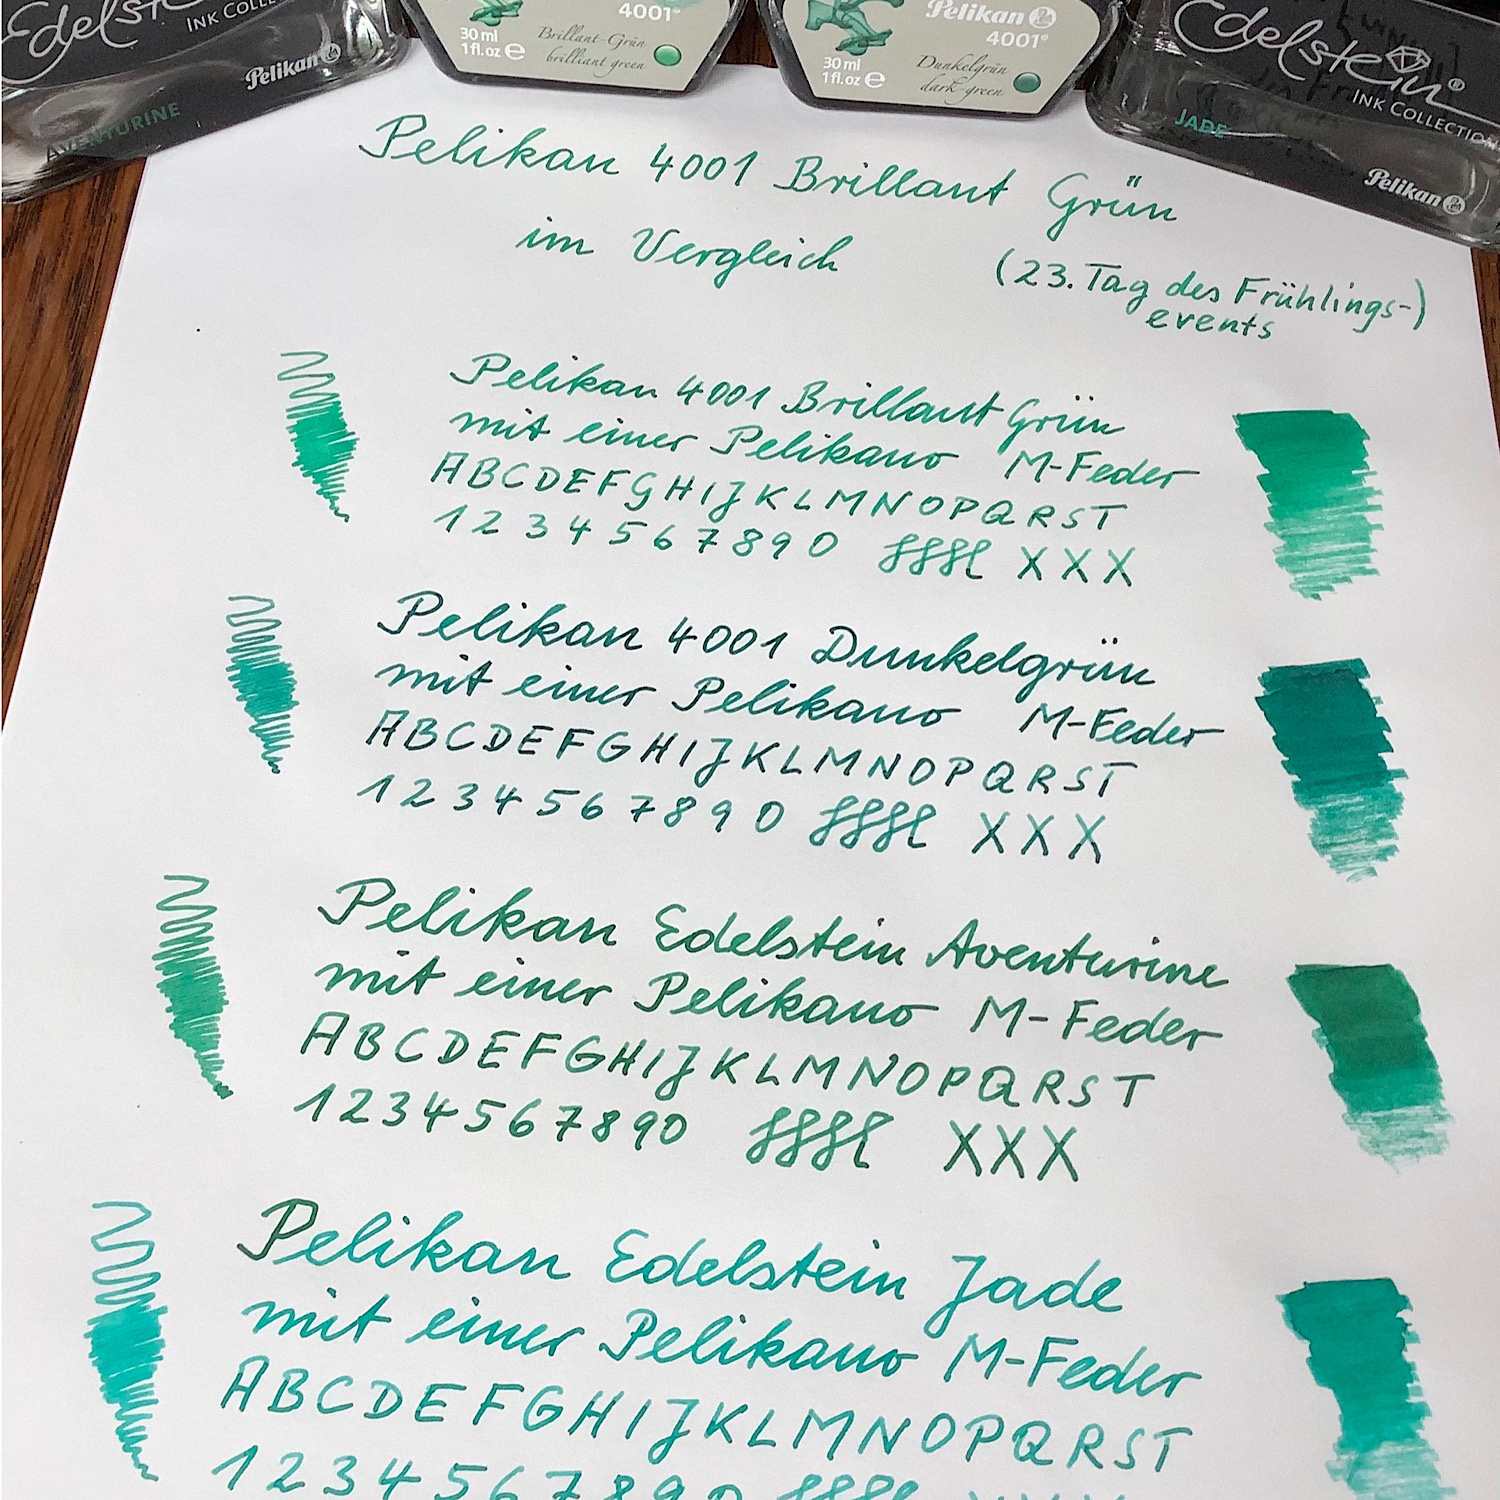 Edelstein
INK COLLEC
Pelikan
AVENTURINE
4001®
30 ml
1 fl.oz e
Brillant-Grün
brilliant green
Pelikan
4001®
30 ml
1 fl.oz e
Dunkelgrün
dark-green
Edelstein®
INK COLLECTION
JADE
Pelikan
Pelikan 4001 Brillant Grün
im Vergleich
(23. Tag des Frühlings-)
events
Pelikan 4001 Brillant Grün
mit einer Pelikano M-Feder
ABCDEFGHIJKLMNOPQRST
1 2 3 4 5 6 7 8 9 0 XXX
Pelikan 4001 Dunkelgrün
mit einer Pelikano M-Feder
ABCDEFGHIJKLMNOPQRST
1 2 3 4 5 6 7 8 9 0 XXX
Pelikan Edelstein Aventurine
mit einer Pelikano M-Feder
ABCDEFGHIJKLMNOPQRST
1234567890 XXX
Pelikan Edelstein Jade
mit einer Pelikano M-Feder
ABCDEFGHIJKLMNOPQRST
1 2 3 4 5 6 7 8 9 0 XXX